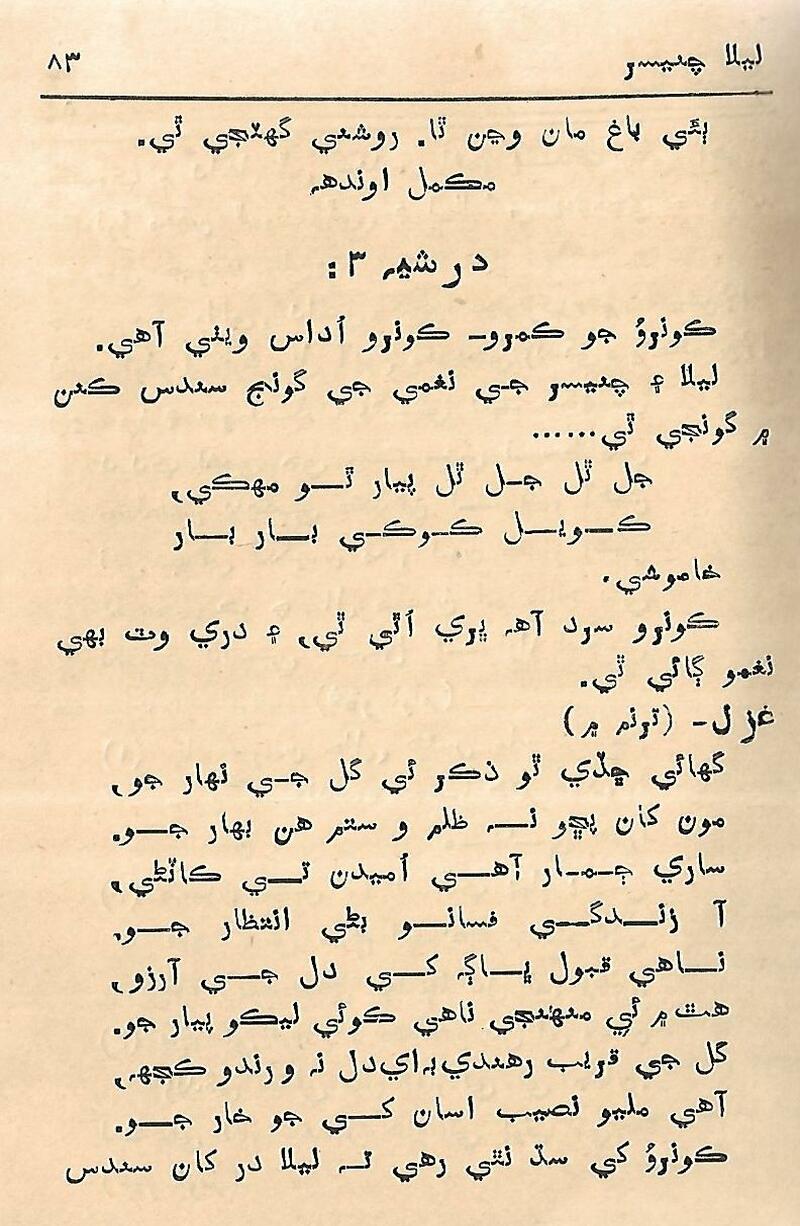 ليلا چنيسر ۸۳
ٻئي باغ مان وڃن ٿا. روشني گهٽجي ٿي.
مڪمل اونداهه
درشيه ۳:
ڪونروُ جو ڪمرو- ڪونرو اُداس ويٺي آهي.
ليلا ۽ چنيسر جي نغمي جي گونج سندس ڪنن
۾ گونجي ٿي......
جل ٿل جل ٿل پيار ٿو مهڪي،
ڪويل ڪوڪي بار بار
خاموشي.
ڪونرو سرد آهه ڀري اُٿي ٿي، ۽ دري وٽ بهي
نغمو ڳائي ٿي.
غزل- (ترنم ۾)
گهائي ڇڏي ٿو ذڪر ئي گل جي نهار جو،
مون کان پڇو نه ظلم و ستم هن بهار جو.
ساري ڄمار آهي اُميدن تي ڪاٽڻي،
آ زندگي فسانو بڻي انتظار جو.
ناهي قبول ڀاڳه کي دل جي آرزو،
هٿ ۾ ئي منهنجي ناهي ڪوئي ليڪو پيار جو.
گل جي قريب رهندي به اي دل نه ورندو ڪجهه،
آهي مليو نصيب اسان کي جو خار جو.
ڪونروُ کي سڌ نٿي رهي ته ليلا در کان سندس